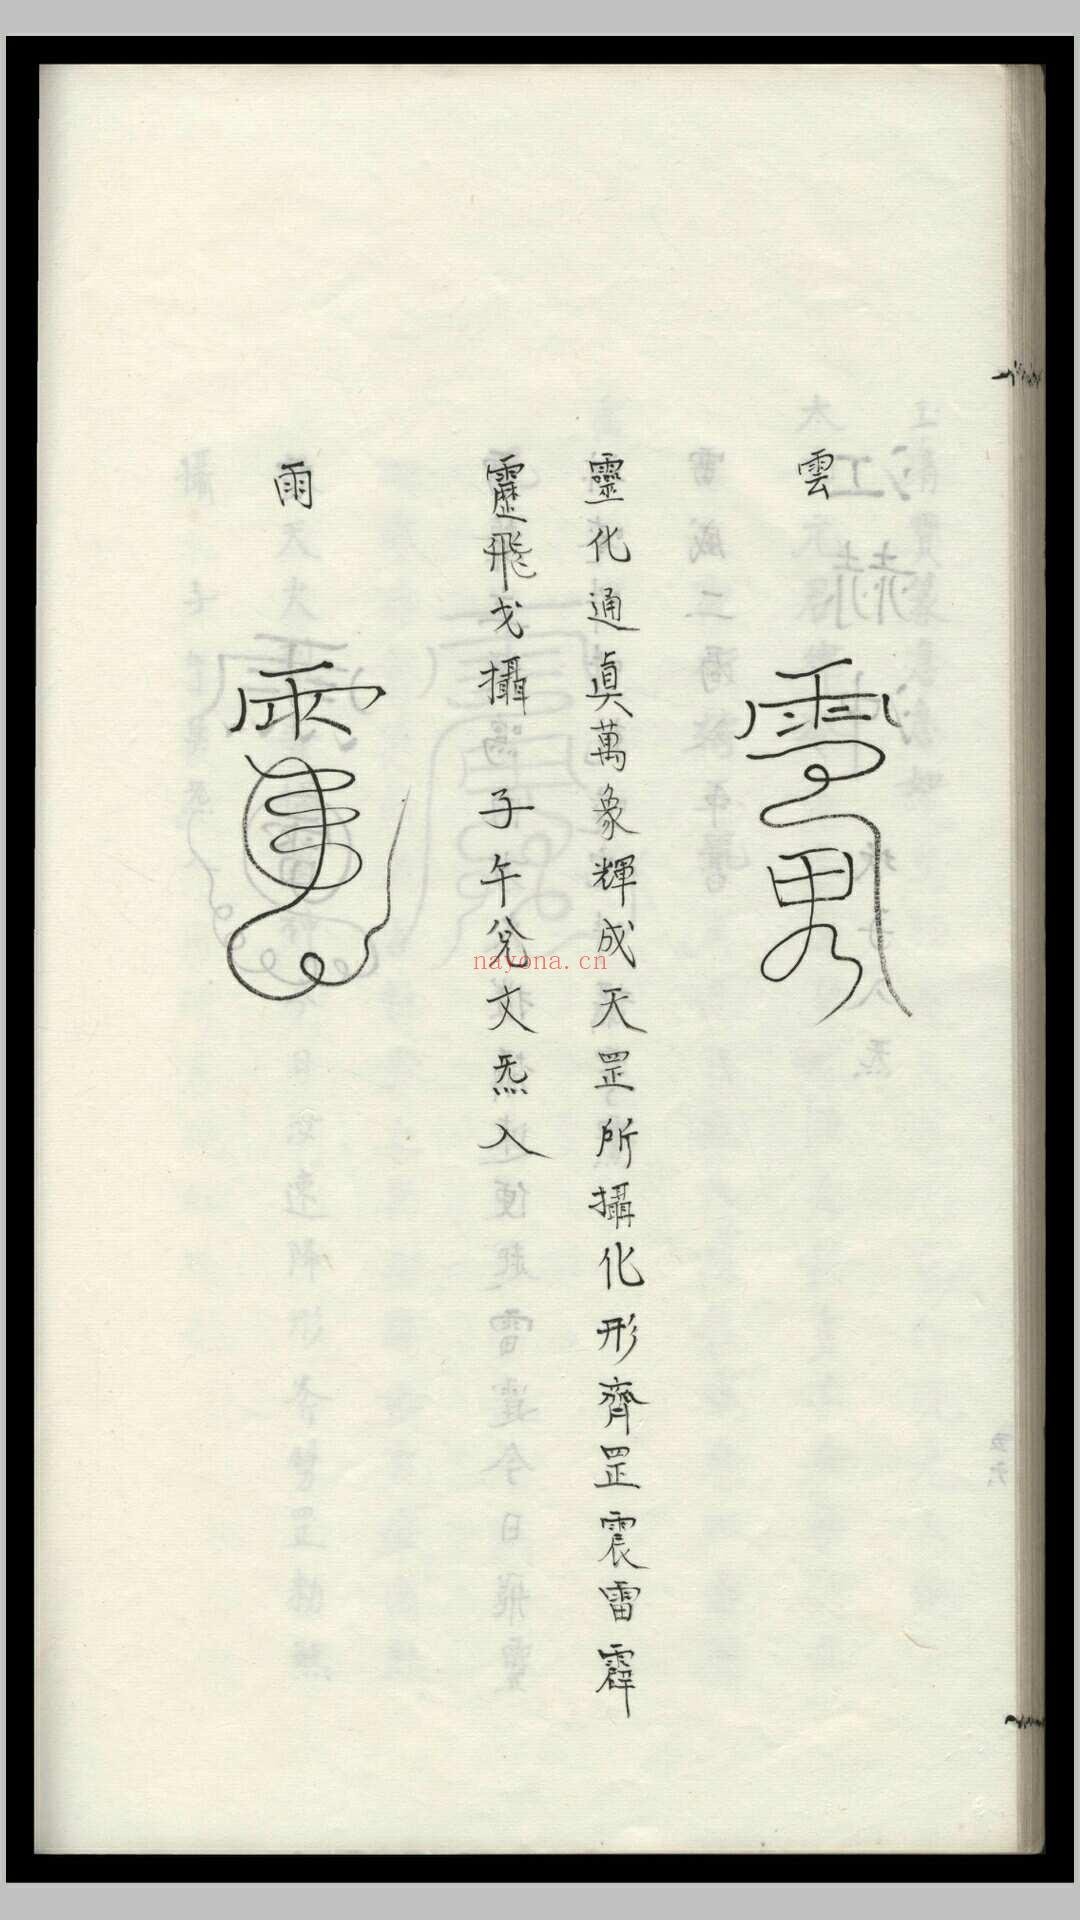 雲
靈化通眞萬象輝成天罡所攝化形齊罡震雷霹
靂飛戈攝 子午兌文炁入
雨
nayona.cn